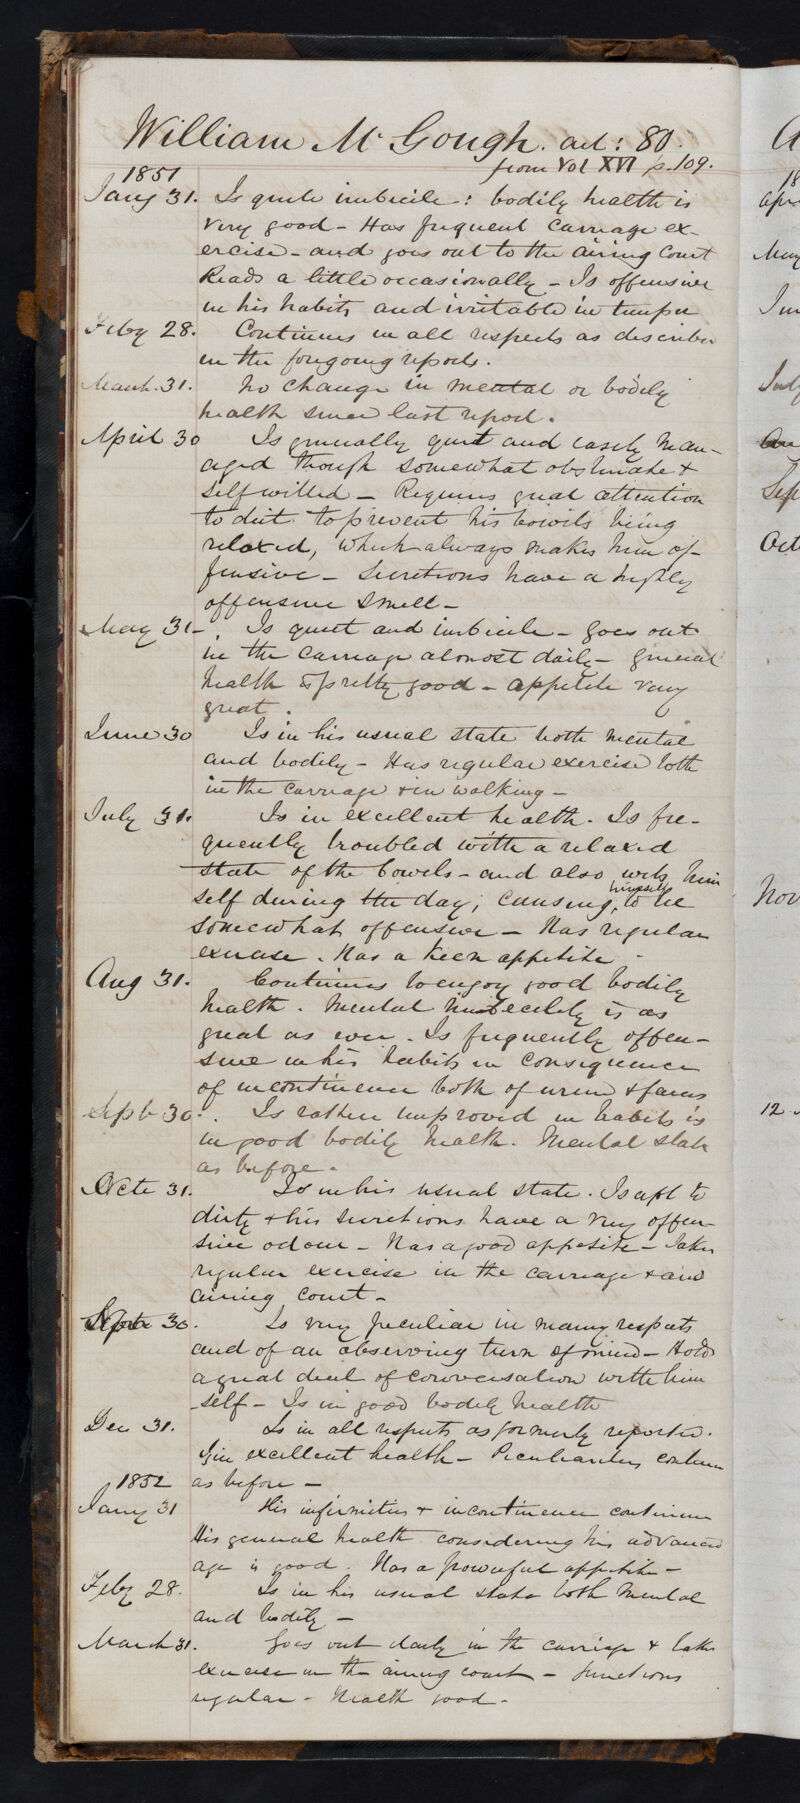 William Mc Gough. aet: 80.
from Vol XVI p. 109.
1851
Jany 31. Is quite imbecile: bodily health is
very good - Has frequent carriage ex-
ercise - and goes out to the airing Court
Reads a little occasionally - Is offensive
in his habits and irritable in temper
Feby 28. Continues in all respects as described
in the foregoing reports.
March. 31. No change in mental or bodily
health since last report.
April 30 Is generally quiet and easily man-
aged though somewhat obstinate &
self willed - Requires great attention
to diet to prevent his bowels being
relaxed, which always makes him of-
fensive - Secretions have a highly
offensive smell -
May 31 - . Is quiet and imbecile - goes out
in the carriage almost daily - general
health is pretty good - appetite very
great.
June 30 Is in his usual state both mental
and bodily - Has regular exercise both
in the carriage & in walking -
July 31. Is in excellent health. Is fre-
quently troubled with a relaxed
state of the bowels - and also wets him
self during the day; causing himself to be
somewhat offensive - Has regular
exercise. Has a keen appetite.
Aug 31. Continues to enjoy good bodily
health. Mental imbecility is as
great as ever. Is frequently offen-
sive in his habits in consequence
of incontinence both of urine & faeces
Sept 30. . Is rather improved in habits is
in good bodily health. Mental state
as before.
Octe 31. Is in his usual state. Is apt to
dirty & his secretions have a very offen-
sive odour - Has a good appetite - Takes
regular exercise in the carriage & and
airing court -
30. Is very peculiar in many respects
and of an observing turn of mind - Holds
a great deal of conversation with him
-self - Is in good bodily health
Dec 31. Is in all respects as formerly reported.
Is in excellent health - Peculiarities continue
1852 as before -
Jany 31 His infirmities & incontinence continue
His general health considering his advanced
age is good. Has a powerful appetite -
Feby 28. Is in his usual state both mental
and bodily -
March 31. Goes out daily in the carriage & takes
exercise in the airing court - functions
regular - health good -
A
18
Apr
May
Jun
July
Sep
Oct
Nov
12